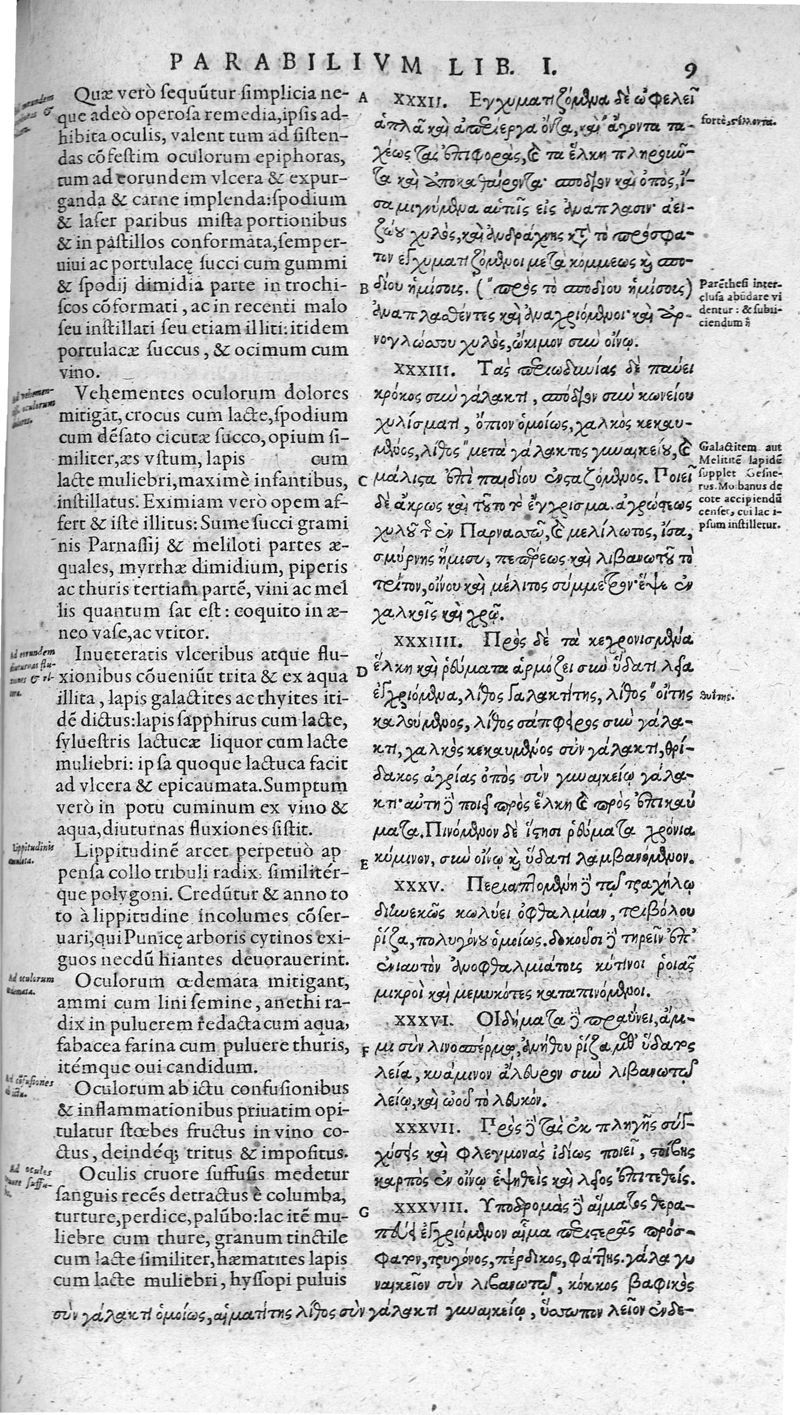 PARABILIVM LIB. I. 9
Quæ verò sequũtur simplicia ne-
que adeò operosa remedia, ipsis ad-
hibita oculis, valent tum ad sisten-
das cõfestim oculorum epiphoras,
tum ad eorundem vlcera & expur-
ganda & carne implenda: spodium
& laser paribus mista portionibus
& in pastillos conformata, semper-
uiui ac portulacę succi cum gummi
& spodij dimidia parte in trochi-
scos cõformati, ac in recenti malo
seu instillati seu etiam illiti: itidem
portulacæ succus, & ocimum cum
vino.
Vehementes oculorum dolores
mitigãt, crocus cum lacte, spodium
cum dẽsato cicutæ succo, opium si-
militer, æs vstum, lapis cum
lacte muliebri, maximè infantibus,
instillatus. Eximiam verò opem af-
fert & iste illitus: Sume succi grami
nis Parnassij & meliloti partes æ-
quales, myrrhæ dimidium, piperis
ac thuris tertiam partẽ, vini ac mel
lis quantum sat est: coquito in æ-
neo vase, ac vtitor.
Inueteratis vlceribus atque flu-
xionibus cõueniũt trita & ex aqua
illita, lapis galactites ac thyites iti-
dẽ dictus: lapis sapphirus cum lacte,
syluestris lactucæ liquor cum lacte
muliebri: ipsa quoque lactuca facit
ad vlcera & epicaumata. Sumptum
verò in potu cuminum ex vino &
aqua, diuturnas fluxiones sistit.
Lippitudinẽ arcet perpetuò ap
pensa collo tribuli radix: similitér-
que polygoni. Credũtur & anno to
to à lippitudine incolumes cõser-
uari, qui Punicę arboris cytinos exi-
guos necdũ hiantes deuorauerint.
Oculorum œdemata mitigant,
ammi cum lini semine, anethi ra-
dix in puluerem redacta cum aqua,
fabacea farina cum puluere thuris,
itémque oui candidum.
Oculorum ab ictu confusionibus
& inflammationibus priuatim opi-
tulatur stœbes fructus in vino co-
ctus, deindéq; tritus & impositus.
Oculis cruore suffusis medetur
sanguis recẽs detractus è columba,
turture, perdice, palũbo: lac itẽ mu-
liebre cum thure, granum tinctile
cum lacte similiter, hæmatites lapis
cum lacte muliebri, hyssopi puluis
A
B
C
D
E
F
G
XXXII. Εγχυματιζόμενα δὲ ὠφελεῖ
ἁπλᾶ καὶ ἀπερίεργα ὄντα, καὶ ἄγοντα τα-
χέως τὰς ἐπιφορὰς, καὶ τὰ ἕλκη πληροῦν-
τα καὶ ἀποκαθαίροντα· σπόδιον καὶ ὀπὸς, ἴ-
σα μιγνύμενα αὐτοῖς εἰς ἀνάπλασιν· ἀει-
ζώου χυλὸς, καὶ ἀνδράχνης κατὰ τὸ πρόσφα-
τον ἐγχυματιζόμενοι μετὰ κόμμεως καὶ σπο-
δίου ἡμίσοις. ("πρὸς τὸ σποδίου ἡμίσοις)
ἀναπλασθέντες καὶ ἀναχριόμενοι· καὶ ἀρ-
νογλώσσου χυλὸς, ὤκιμον σὺν οἴνῳ.
XXXIII. Τὰς περιωδυνίας δὲ παύει
κρόκος σὺν γάλακτι, σπόδιον σὺν κωνείου
χυλίσματι, ὄπιον ὁμοίως, χαλκὸς κεκαυ-
μένος, λίθος "μετὰ γάλακτος γυναικείου, καὶ
μάλιστα ἐπὶ παιδίου ἐνσταζόμενος. Ποιεῖ
δὲ ἄκρως καὶ τοῦτο τὸ ἔγχρισμα. ἀγρώστεως
χυλοῦ τῆς ἐν Παρνασσῷ, καὶ μελίλωτος, ἴσα,
σμύρνης ἥμισυ, πεπέρεως καὶ λιβανωτοῦ τὸ
τρίτον, οἴνου καὶ μέλιτος σύμμετρον· ἕψε ἐν
χαλκοῖς καὶ χρῶ.
XXXIIII. Πρὸς δὲ τὰ κεχρονισμένα
ἕλκη καὶ ῥεύματα ἁρμόζει σὺν ὕδατι λεῖα
ἐγχριόμενα, λίθος γαλακτίτης, λίθος "οἵτης
καλούμενος, λίθος σάπφειρος σὺν γάλα-
κτι, χαλκὸς κεκαυμένος σὺν γάλακτι, θρί-
δακος ἀγρίας ὀπὸς σὺν γυναικείῳ γάλα-
κτι· αὐτὴ δὲ ποιεῖ πρὸς ἕλκη καὶ πρὸς ἐπικαύ
ματα. Πινόμενον δὲ ἵστησι ῥεύματα χρόνια
κύμινον, σὺν οἴνῳ καὶ ὕδατι λαμβανόμενον.
XXXV. Περιαπτομένη δὲ τῷ τραχήλῳ
διηνεκῶς κωλύει ὀφθαλμίαν, τριβόλου
ῥίζα, πολυγόνου ὁμοίως. δοκοῦσι δὲ τηρεῖν ἐπ'
ἐνιαυτὸν ἀνοφθαλμιάτοις κύτινοι ῥοιᾶς
μικροὶ καὶ μεμυκότες καταπινόμενοι.
XXXVI. Οἰδήματα δὲ πραΰνει, ἄμ-
μι σὺν λινοσπέρμῳ, ἀνήθου ῥίζα μεθ' ὕδατος
λεία, κυάμινον ἄλευρον σὺν λιβανωτῷ
λείῳ, καὶ ὠοῦ τὸ λευκόν.
XXXVII. Πρὸς δὲ τὰς ἐκ πληγῆς συγ-
χύσεις καὶ φλεγμονὰς ἰδίως ποιεῖ, στοίβης
καρπὸς ἐν οἴνῳ ἑψηθεὶς καὶ λεῖος ἐπιτεθείς.
XXXVIII. Υποδρομὰς δὲ αἵματος θερα-
πεύει ἐγχριόμενον αἷμα περιστερᾶς πρόσ-
φατον, τρυγόνος, πέρδικος, φάττης. γάλα γυ
ναικεῖον σὺν λιβανωτῷ, κόκκος βαφικὸς
σὺν γάλακτι ὁμοίως, αἱματίτης λίθος σὺν γάλακτι γυναικείῳ, ὕσσωπον λεῖον ἐνδε-
Parẽthesi inter-
clusa abũdare vi
dentur: & subii-
ciendum
Galactitem aut
Melititẽ lapidẽ
supplet Gesne-
rus. Mobanus de
cote accipiendũ
censet, cui lac i-
psum instilletur.
θυΐτης.
Lippitudinis
Ad oculorum